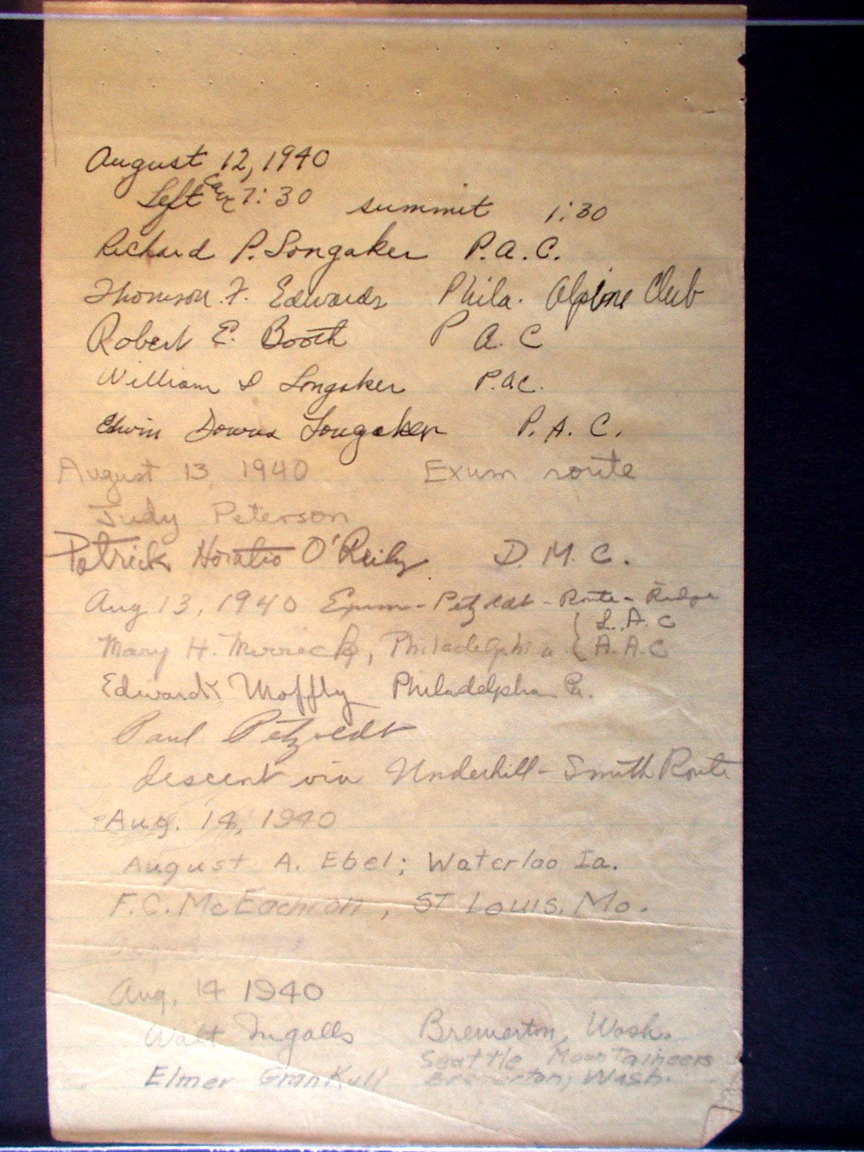 August 12, 1940
Left 7:30 summit 1:30
Richard P. Longaker P.A.C.
Thomson F. Edwards Phila. Alpine Club
Robert E. Booth P A. C
William D Longaker P.AC.
Edwin Downs Longaker P. A. C.
August 13, 1940 Exum route
Judy Peterson
Patrick Horatio O'Reily D. M. C.
Aug 13, 1940 Exum-Petzoldt-Route-Ridge
L.A.C
Mary H. Merrick, Philadelphia A.A.C
Edward Moffly Philadelphia Pa.
Paul Petzoldt
descent via Underhill-Smith Route
Aug. 14, 1940
August A. Ebel; Waterloo Ia.
F.C. McEachron, ST Louis, Mo.
Aug. 14 1940
Walt Ingalls Bremerton, Wash.
Seattle Mountaineers
Elmer Grankull Bremerton, Wash.